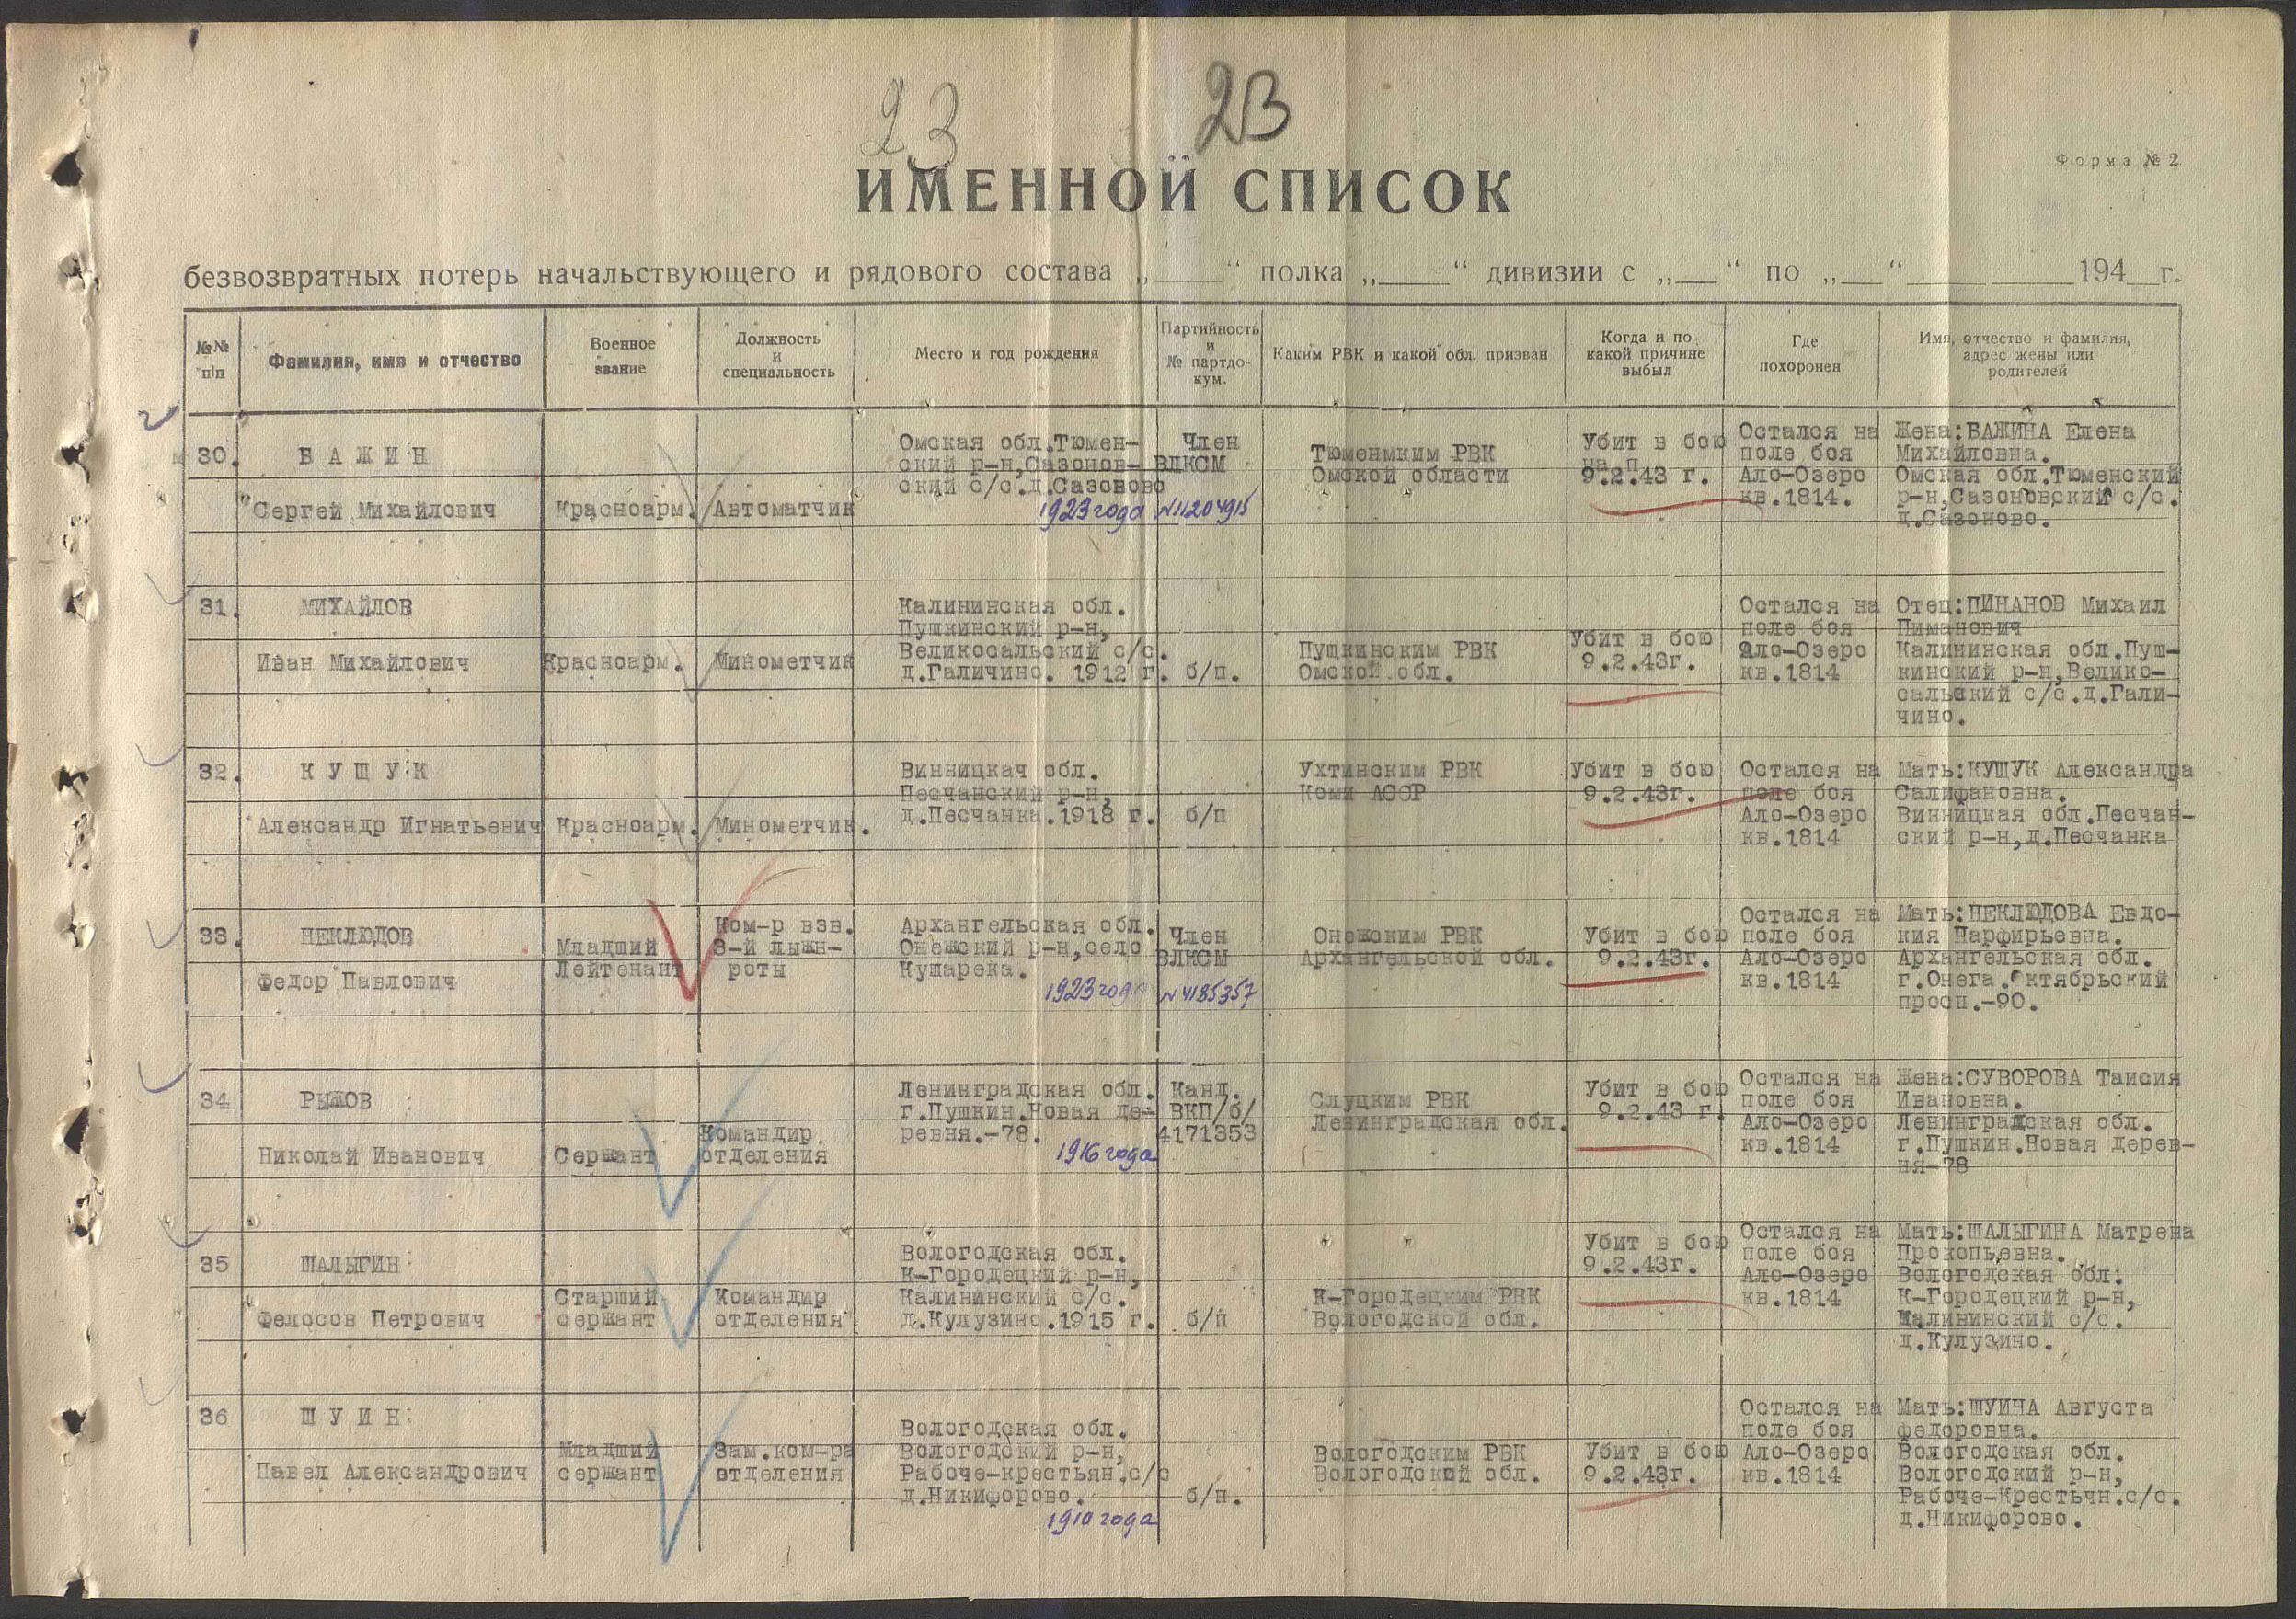 23
23
Форма № 2
ИМЕННОЙ СПИСОК
безвозвратных потерь начальствующего и рядового состава „ “ полка „ “ дивизии с „ “ по „ “ 194 г.
№№
п/п
Фамилия, имя и отчество
Военное
звание
Должность
и
специальность
Место и год рождения
Партийность
и
№ партдо-
кум.
Каким РВК и какой обл. призван
Когда и по
какой причине
выбыл
Где
похоронен
Имя, отчество и фамилия,
адрес жены или
родителей
30.
БАЖИН
Сергей Михайлович
Красноарм.
Автоматчик
Омская обл.Тюмен-
ский р-н,Сазонов-
ский с/с.д.Сазоново
1923 года
Член
ВЛКСМ
№11204915
Тюменмким РВК
Омской области
Убит в бою
9.2.43 г.
Остался на
поле боя
Ало-Озеро
кв.1814.
Жена:ВАЖИНА Елена
Михайловна.
Омская обл.Тюменский
р-н,Сазоновский с/с.
д.Сазоново.
31.
МИХАЙЛОВ
Иван Михайлович
Красноарм.
Минометчик
Калининская обл.
Пушкинский р-н,
Великосальский с/с.
д.Галичино. 1912 г.
б/п.
Пушкинским РВК
Омской обл.
Убит в бою
9.2.43г.
Остался на
поле боя
Ало-Озеро
кв.1814
Отец:ПИНАНОВ Михаил
Пиманович
Калининская обл.Пуш-
кинский р-н,Велико-
сальский с/с.д.Гали-
чино.
32.
КУЩУК
Александр Игнатьевич
Красноарм.
Минометчик.
Винницкач обл.
Песчанский р-н,
д.Песчанка.1918 г.
б/п
Ухтинским РВК
Коми АССР
Убит в бою
9.2.43г.
Остался на
поле боя
Ало-Озеро
кв.1814
Мать:КУЩУК Александра
Салифановна.
Винницкая обл.Песчан-
ский р-н,д.Песчанка
33.
НЕКЛЮДОВ
Федор Павлович
Младший
Лейтенант
Ком-р взв.
3-й лыжн-
роты
Архангельская обл.
Онежский р-н,село
Кушарека.
1923 года
Член
ВЛКСМ
№4185357
Онежским РВК
Архангельской обл.
Убит в бою
9.2.43г.
Остался на
поле боя
Ало-Озеро
кв.1814
Мать:НЕКЛЮДОВА Евдо-
кия Парфирьевна.
Архангельская обл.
г.Онега.Октябрьский
просп.-90.
34
РЫЖОВ
Николай Иванович
Сержант
Командир
отделения
Ленинградская обл.
г.Пушкин.Новая де-
ревня.-78.
1916 года
Канд.
ВКП/б/
4171353
Слуцким РВК
Ленинградская обл.
Убит в бою
9.2.43 г.
Остался на
поле боя
Ало-Озеро
кв.1814
Жена:СУВОРОВА Таисия
Ивановна.
Ленинградская обл.
г.Пушкин.Новая дерев-
ня-78
35
ШАЛЫГИН
Фелосов Петрович
Старший
сержант
Командир
отделения
Вологодская обл.
К-Городецкий р-н,
Калининский с/с.
д.Кулузино.1915 г.
б/п
К-Городецким РВК
Вологодской обл.
Убит в бою
9.2.43г.
Остался на
поле боя
Ало-Озеро
кв.1814
Мать:ШАЛЫГИНА Матрена
Прокопьевна.
Вологодская обл.
К-Городецкий р-н,
Калининский с/с.
д.Кулузино.
36
ШУИН
Павел Александрович
Младший
сержант
Зам.ком-ра
отделения
Вологодская обл.
Вологодский р-н,
Рабоче-крестьян.с/с
д.Никифорово.
1910 года
б/п.
Вологодским РВК
Вологодской обл.
Убит в бою
9.2.43г.
Остался на
поле боя
Ало-Озеро
кв.1814
Мать:ШУИНА Августа
федоровна.
Вологодская обл.
Вологодский р-н,
Рабоче-Крестьчн.с/с.
д.Никифорово.